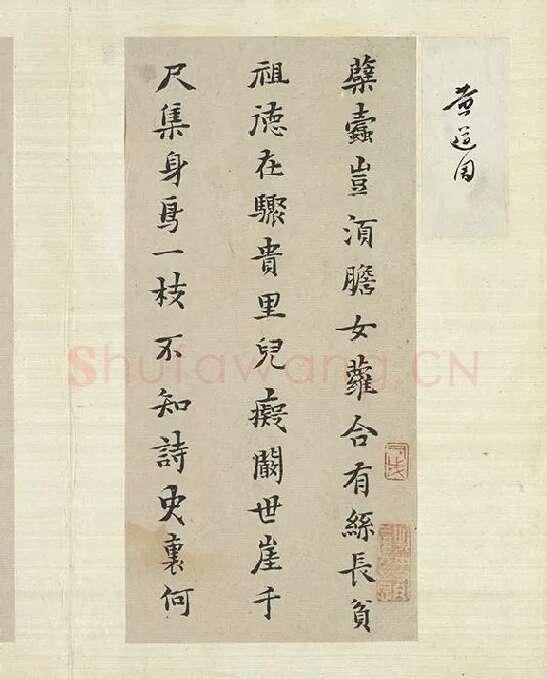 黄道周
蘗蠹豈須膽女蘿合有絲長貧
祖德在驟貴里兒癡闞世崖千
尺集身鳥一枝不知詩史裏何
Shufawang.CN